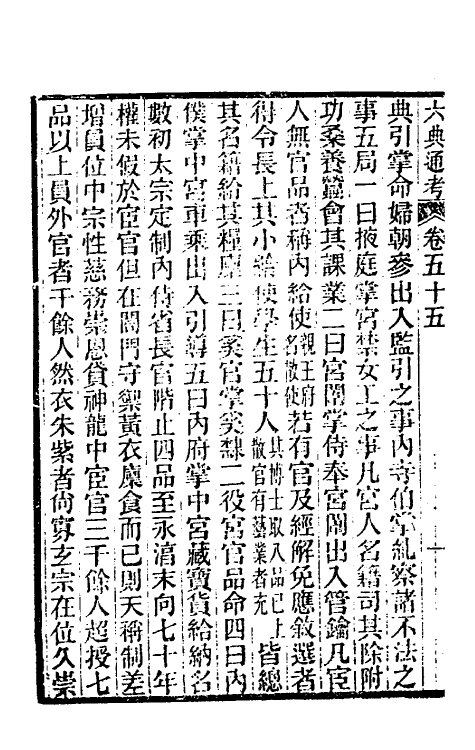 六典通考 卷五十五
典引掌命婦朝參出入監引之事內寺伯掌糺察諸不法之
事五局一曰掖庭掌宮禁女工之事凡宮人名籍司其除附
功桑養蠶會其課業二曰宮闈掌侍奉宮闈出入管鑰凡宦
人無官品者稱內給使親王府名散使若有官及經解免應敘選者
得令長上其小給使學生五十人其博士取八品已上散官有藝業者充皆總
其名籍給其糧廩三曰奚官掌奚隸二役宮官品命四曰內
僕掌中宮車乘出入引導五曰內府掌中宮藏寶貨給納名
數初太宗定制內侍省長官階止四品至永淳末向七十年
權未假於宦官但在閤門守禦黃衣廩食而已則天稱制差
增員位中宗性慈務崇恩貸神龍中宦官三千餘人超授七
品以上員外官者千餘人然衣朱紫者尙寡玄宗在位久崇